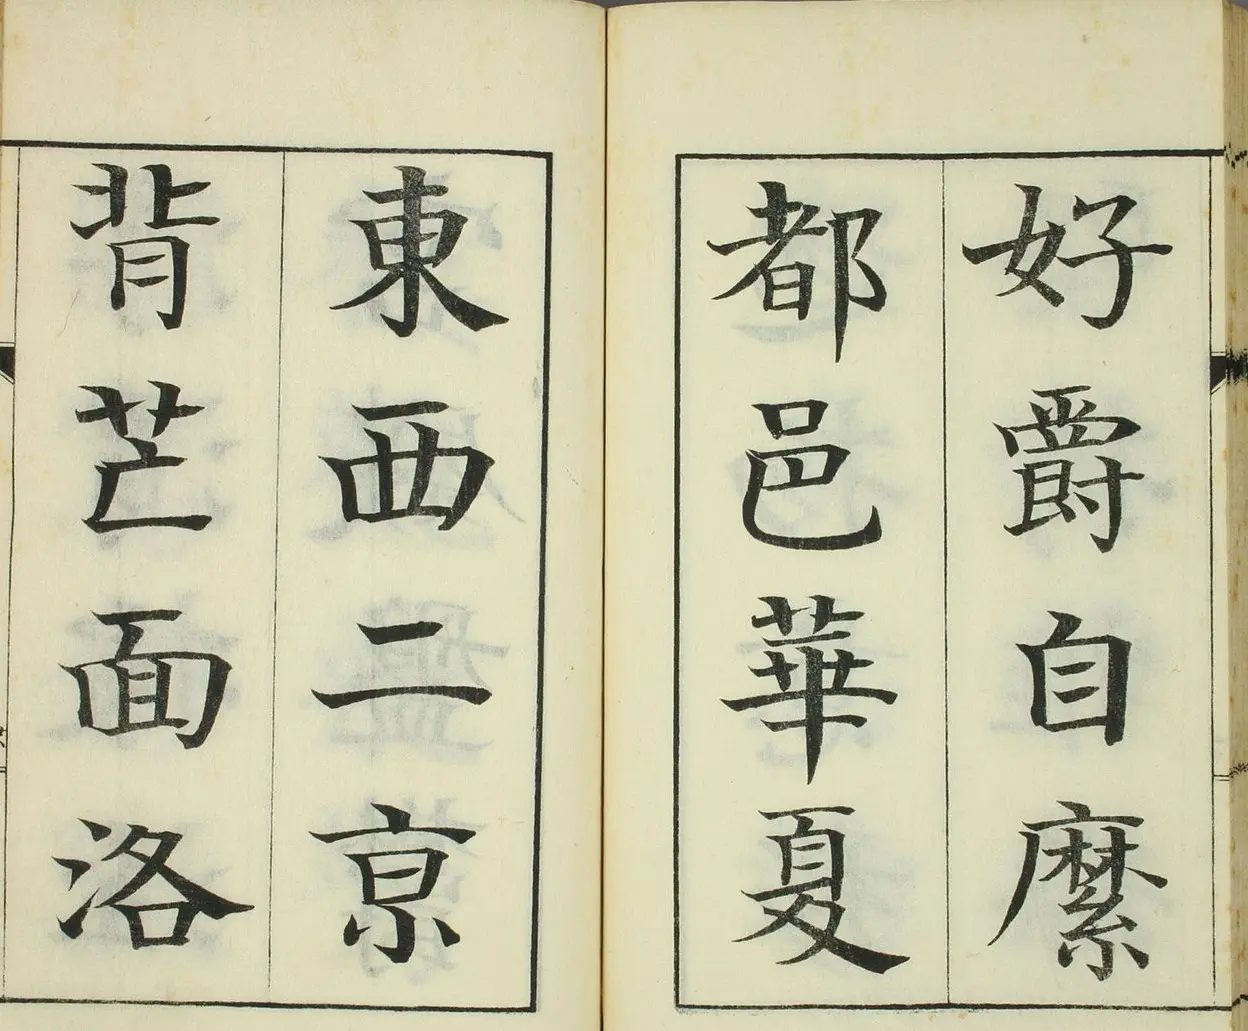 好爵自縻
都邑華夏
東西二京
背芒面洛